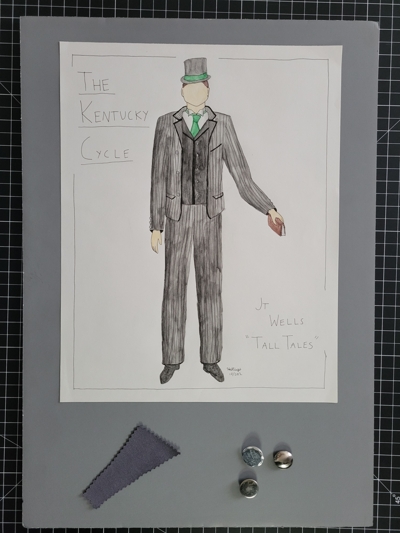 THE
KENTUCKY
CYCLE
JT
WELLS
"TALL TALES"